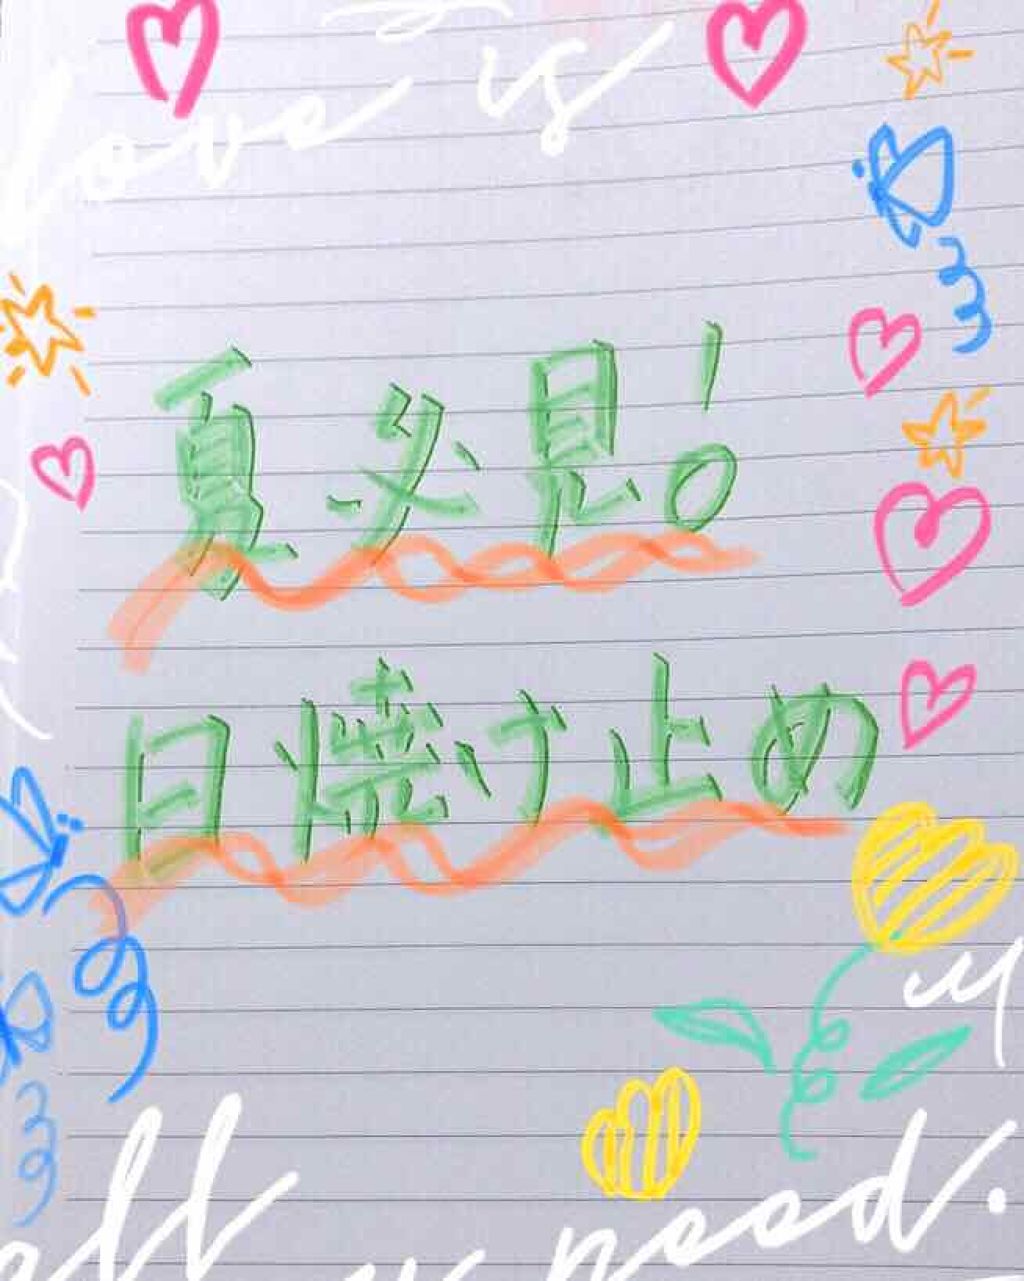 love is
夏必見!
日焼け止め
all
need.